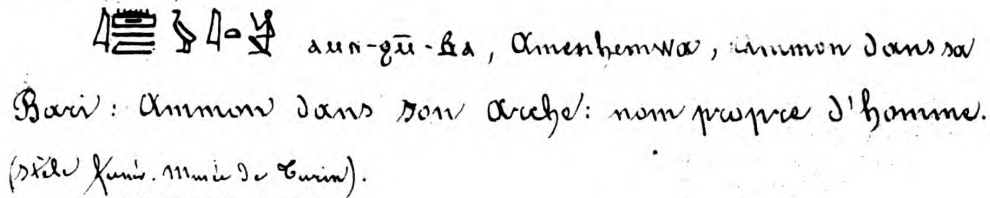 ⲁⲙⲛ-ϩⲙ̄-ⲃⲁ, Amenhemwa, Ammon dans sa
Bari: Ammon dans son Arche: nom propre d'homme.
(Stèle funér. Musée de Turin).